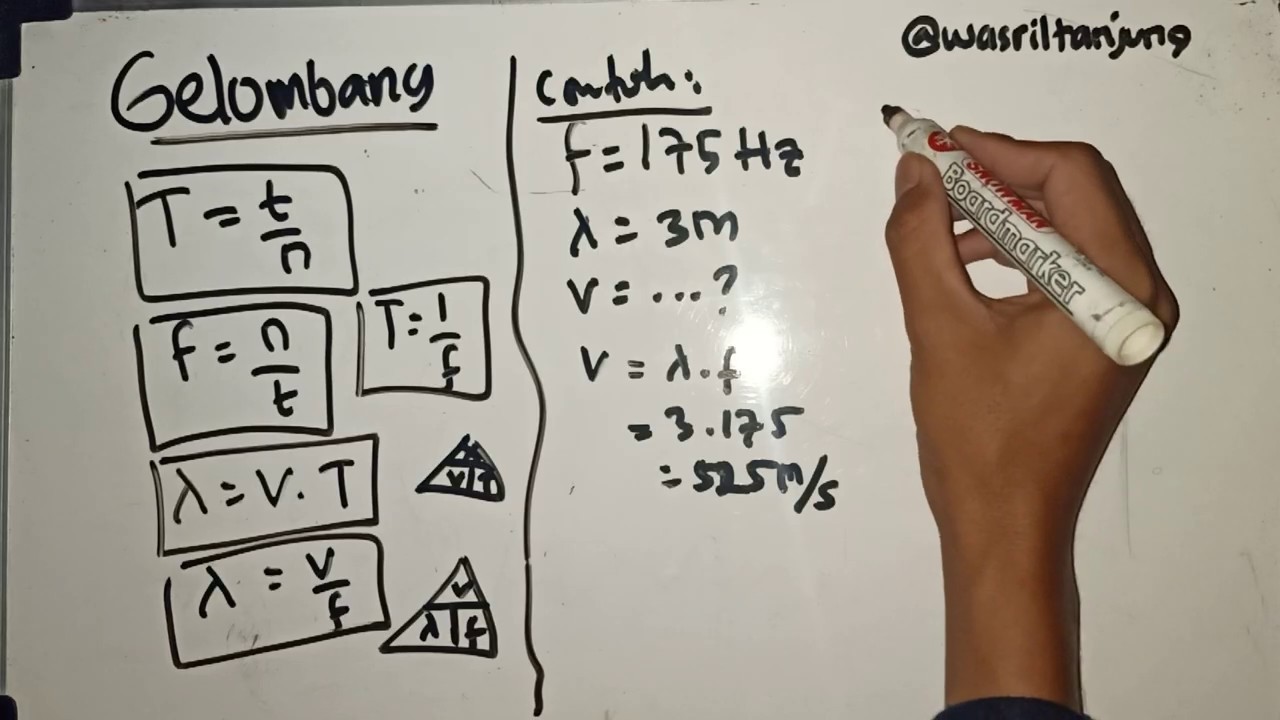 @wasriltanjung
Gelombang
T = t/n
f = n/t
T = 1/f
λ = V. T
λ = v/f
v
λ f
Contoh:
f = 175 Hz
λ = 3m
v = ...?
v = λ.f
= 3.175
= 525 m/s
SNOWMAN
Boardmarker